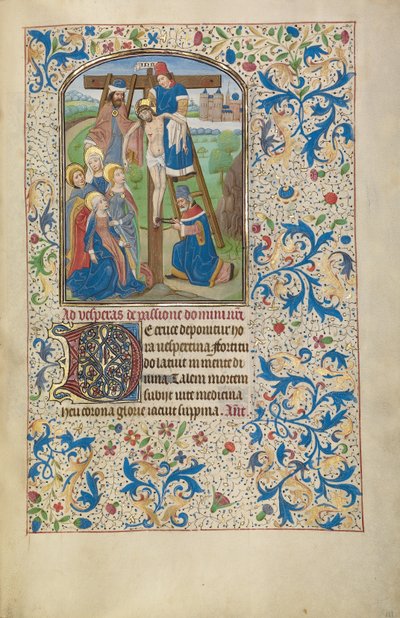 INRI
Ad vesperas de passione domini nri
De cruce deponitur ho
ra vespertina. fortitu
do latuit in mente di
uina. Talem mortem
subijt vite medicina
heu corona glorie iacuit suppina. Ant